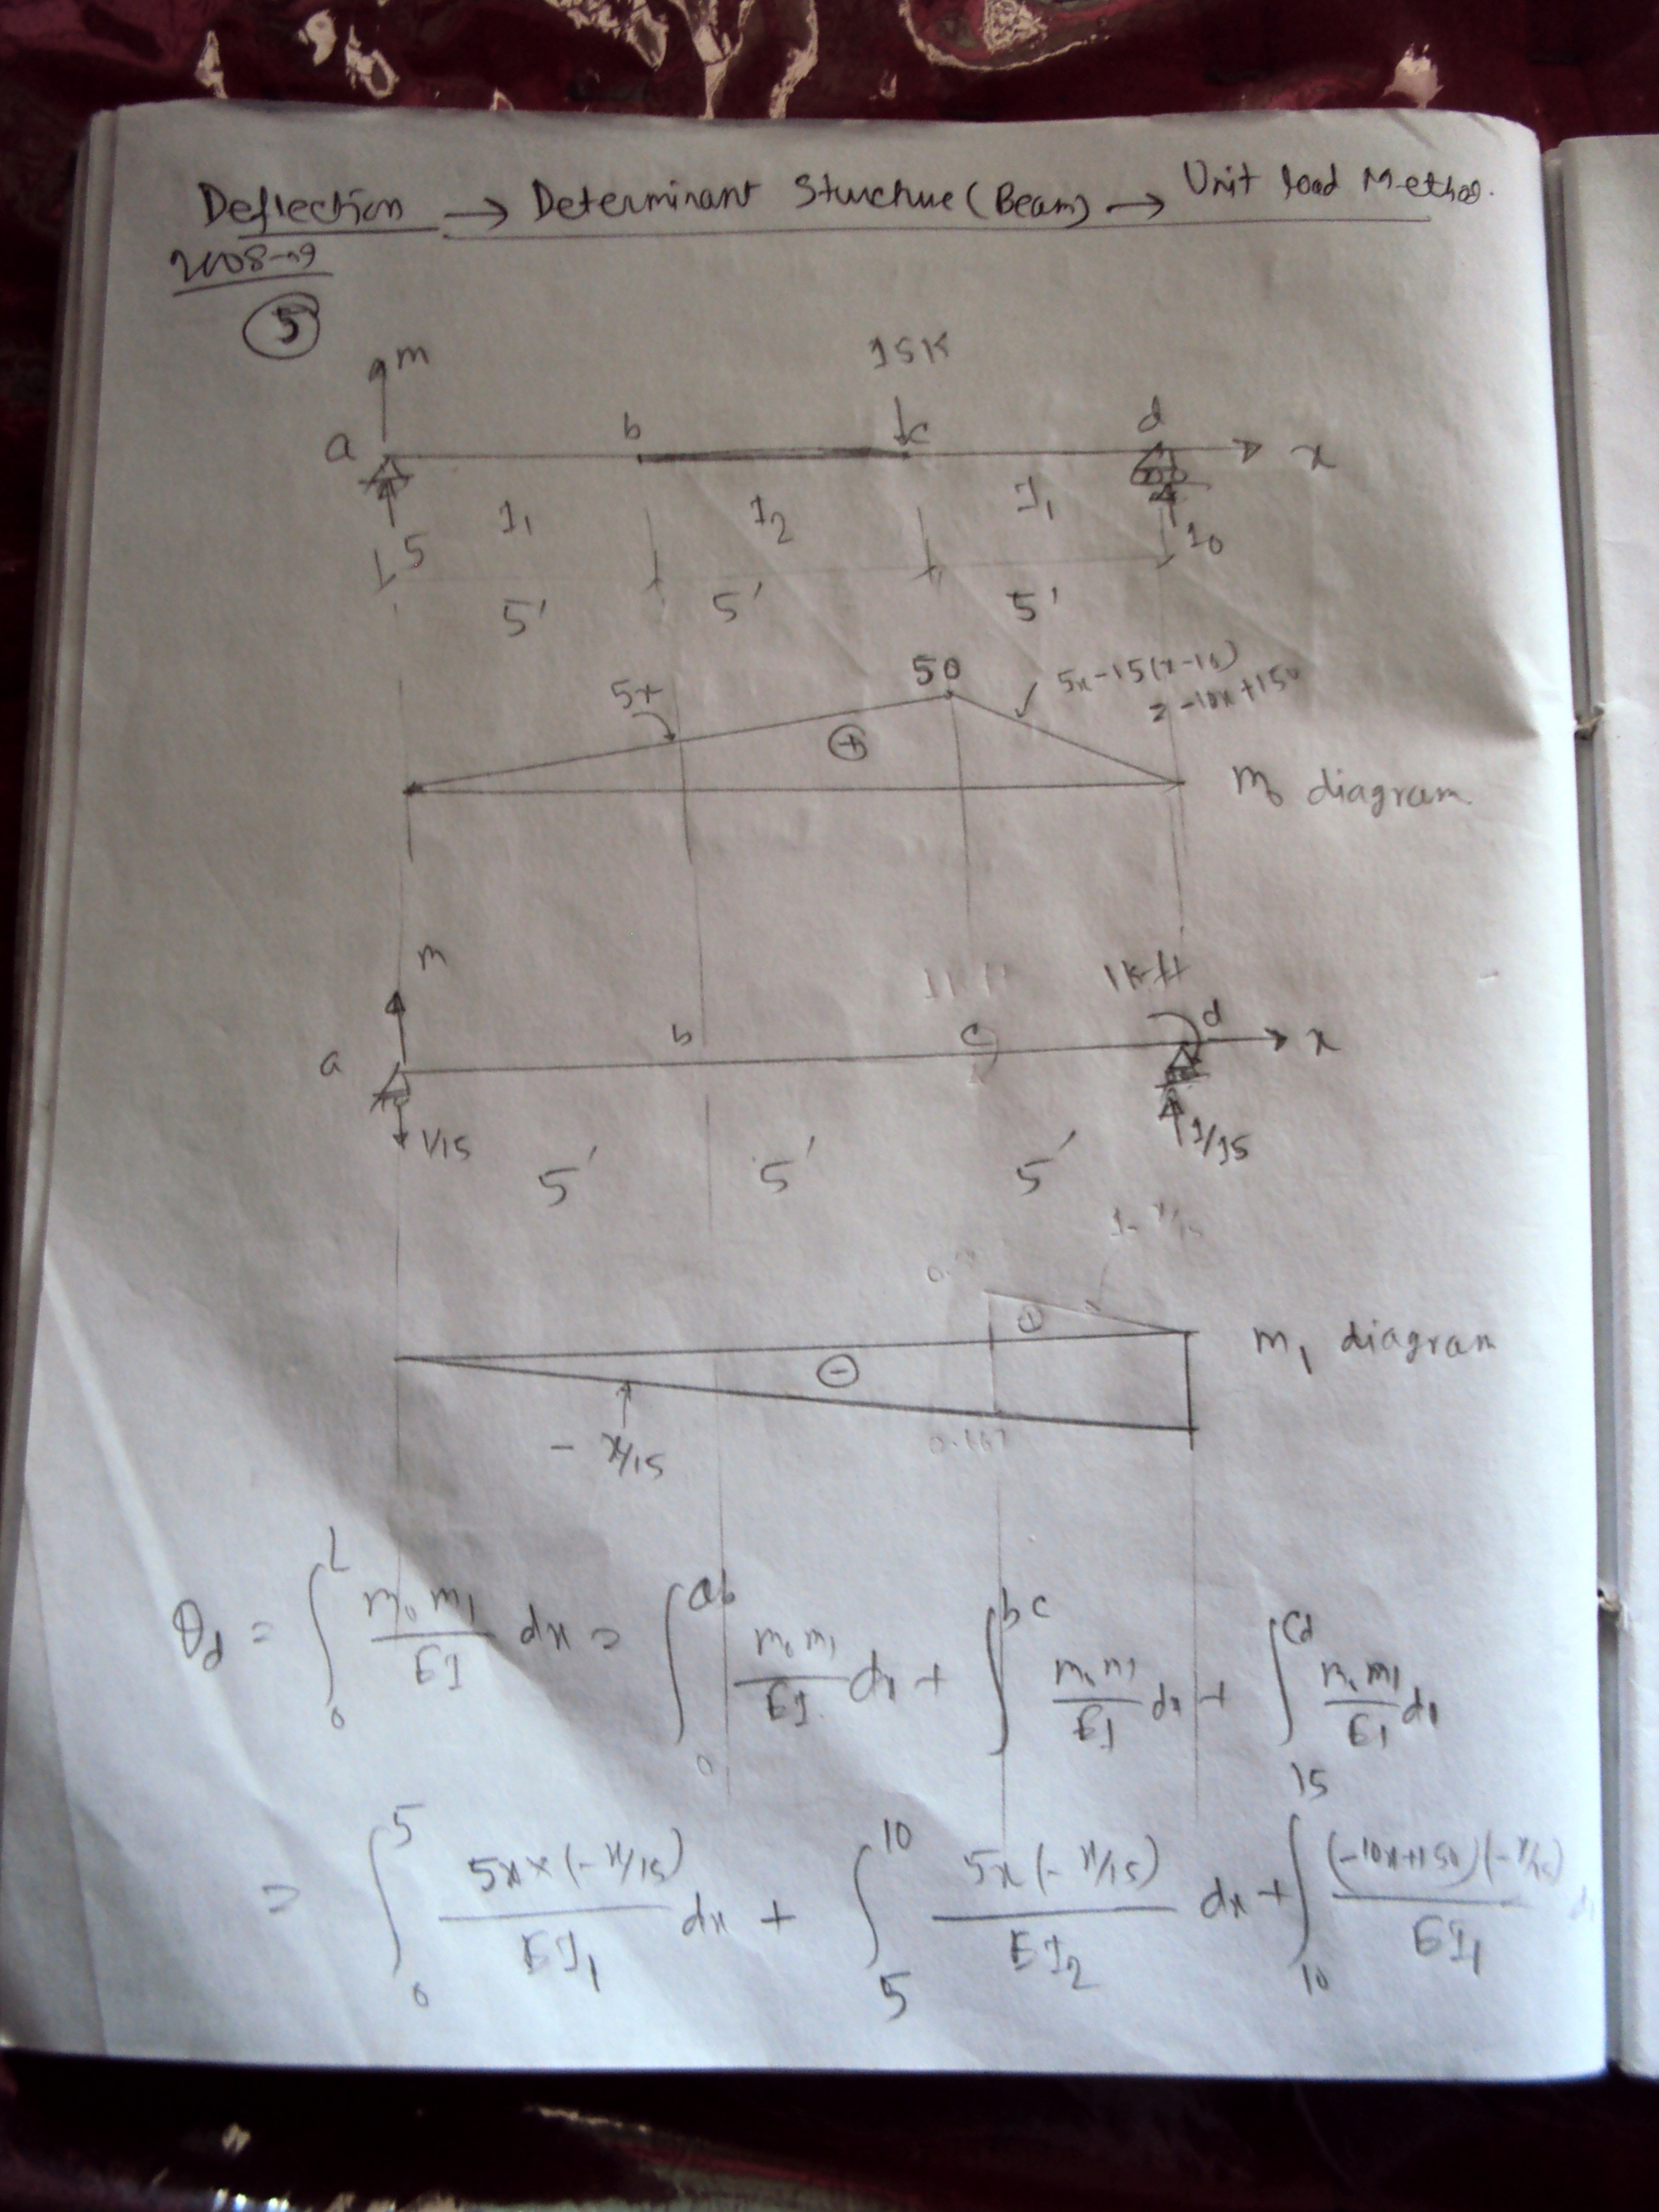 Deflection → Determinant Structure (Beam) → Unit load Method.
2008-09
5
m 15K
a b c d x
I1 I2 I1
5 10
5' 5' 5'
5x 50 5x-15(x-10)
= -10x+150
+
M0 diagram.
m 1K-ft
a b c d x
1/15 1/15
5' 5' 5'
-
m1 diagram
- x/15
θd = ∫0^L m0 m1/EI dx = ∫0^ab m0 m1/EI dx + ∫^bc m0 m1/EI dx + ∫^cd m0 m1/EI dx
= ∫0^5 5x×(-x/15)/EI1 dx + ∫5^10 5x(-x/15)/EI2 dx + ∫10^15 (-10x+150)(-x/15)/EI1 dx